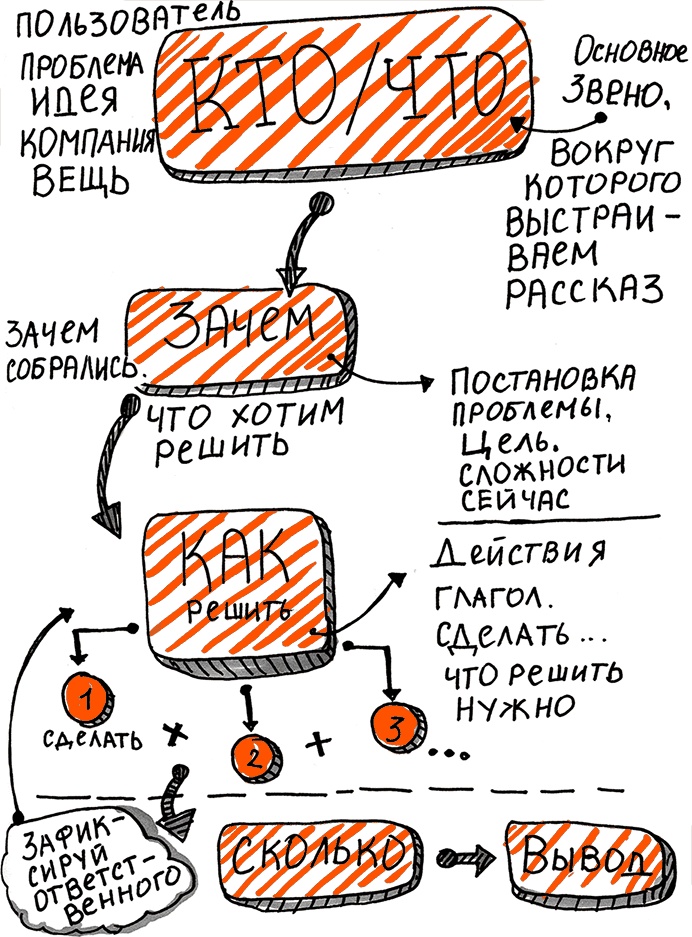 ПОЛЬЗОВАТЕЛЬ
ПРОБЛЕМА
ИДЕЯ
КОМПАНИЯ
ВЕЩЬ
КТО/ЧТО
ОСНОВНОЕ
ЗВЕНО,
ВОКРУГ
КОТОРОГО
ВЫСТРАИ-
ВАЕМ
РАССКАЗ
ЗАЧЕМ
СОБРАЛИСЬ.
ЗАЧЕМ
ЧТО ХОТИМ
РЕШИТЬ
ПОСТАНОВКА
ПРОБЛЕМЫ,
ЦЕЛЬ.
СЛОЖНОСТИ
СЕЙЧАС
КАК
РЕШИТЬ
ДЕЙСТВИЯ
ГЛАГОЛ.
СДЕЛАТЬ...
ЧТО РЕШИТЬ
НУЖНО
1
СДЕЛАТЬ
+
2
+
3...
ЗАФИК-
СИРУЙ
ОТВЕТСТ-
ВЕННОГО
СКОЛЬКО
ВЫВОД